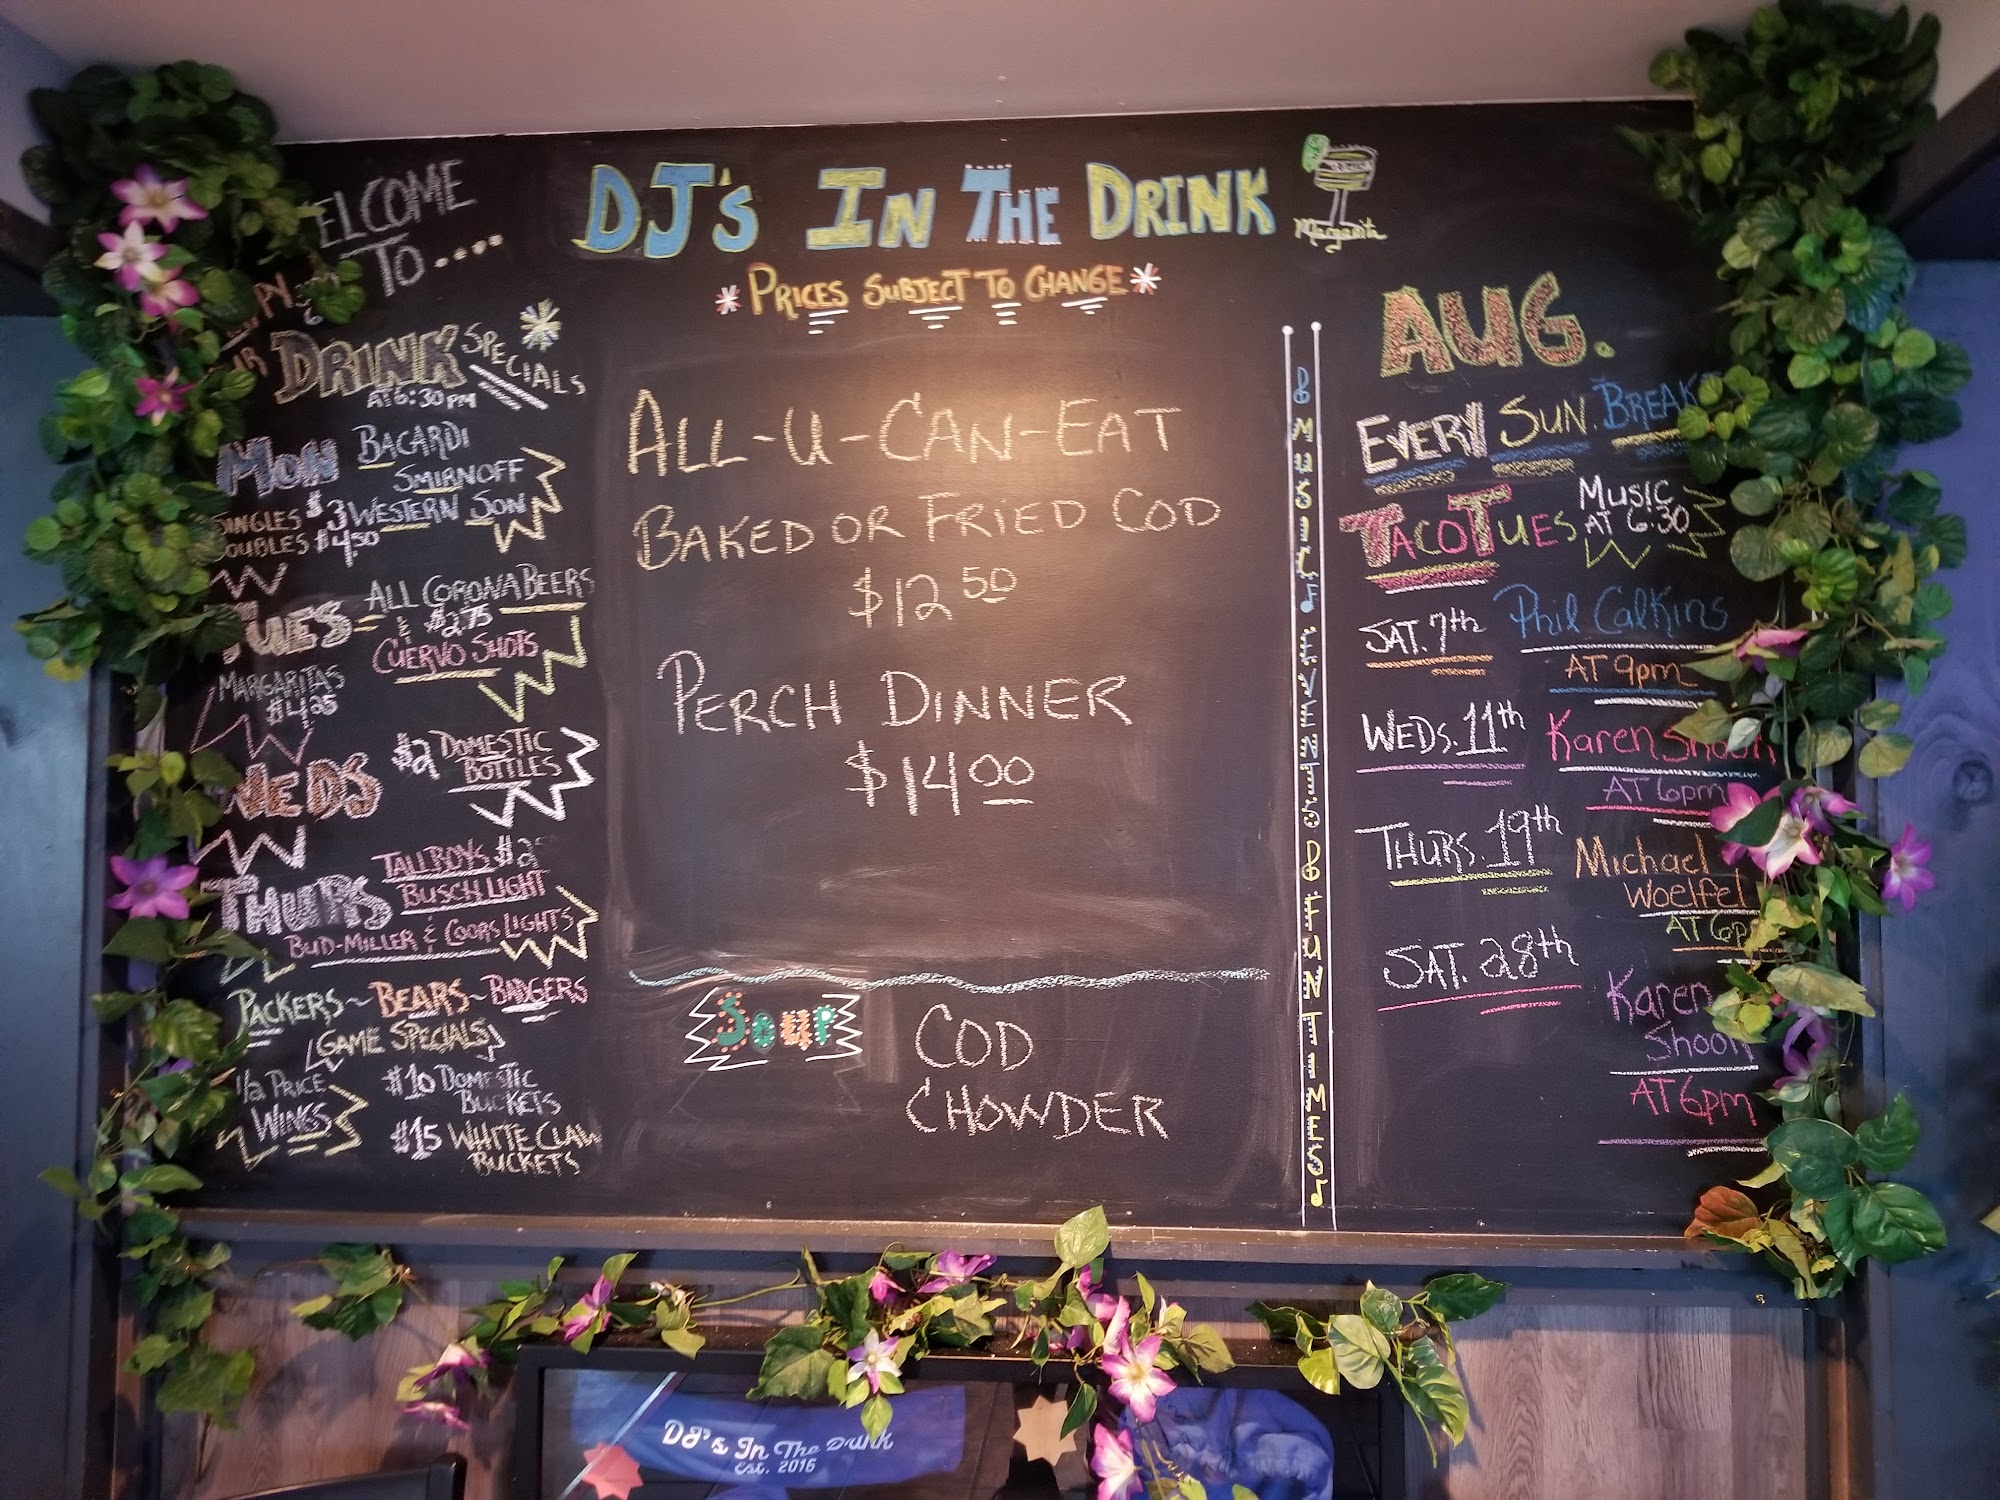 WELCOME
TO....
DJ's IN THE DRINK
Margarita
*PRICES SUBJECT TO CHANGE*
DRINK SPECIALS
AT 6:30PM
MON BACARDI
SMIRNOFF
SINGLES $3 WESTERN SON
DOUBLES $4.50
TUES ALL CORONA BEERS
& $2.75
CUERVO SHOTS
MARGARITAS
$4.25
WEDS $2 DOMESTIC
BOTTLES
THURS TALLBOYS
BUSCH LIGHT
BUD-MILLER & COORS LIGHTS
PACKERS~BEARS~BADGERS
GAME SPECIALS
1/2 PRICE
WINGS
$10 DOMESTIC
BUCKETS
$15 WHITE CLAW
BUCKETS
ALL-U-CAN-EAT
BAKED OR FRIED COD
$12.50
PERCH DINNER
$14.00
SOUP
COD
CHOWDER
MUSIC EVENTS & FUN TIMES
AUG.
EVERY SUN. BREAK
TACO TUES MUSIC
AT 6:30
SAT. 7th Phil Calkins
AT 9pm
WEDS. 11th Karen Shook
AT 6pm
THURS. 19th Michael
Woelfel
AT 6pm
SAT. 28th Karen
Shook
AT 6pm
DJ's In The Drink
Est. 2016